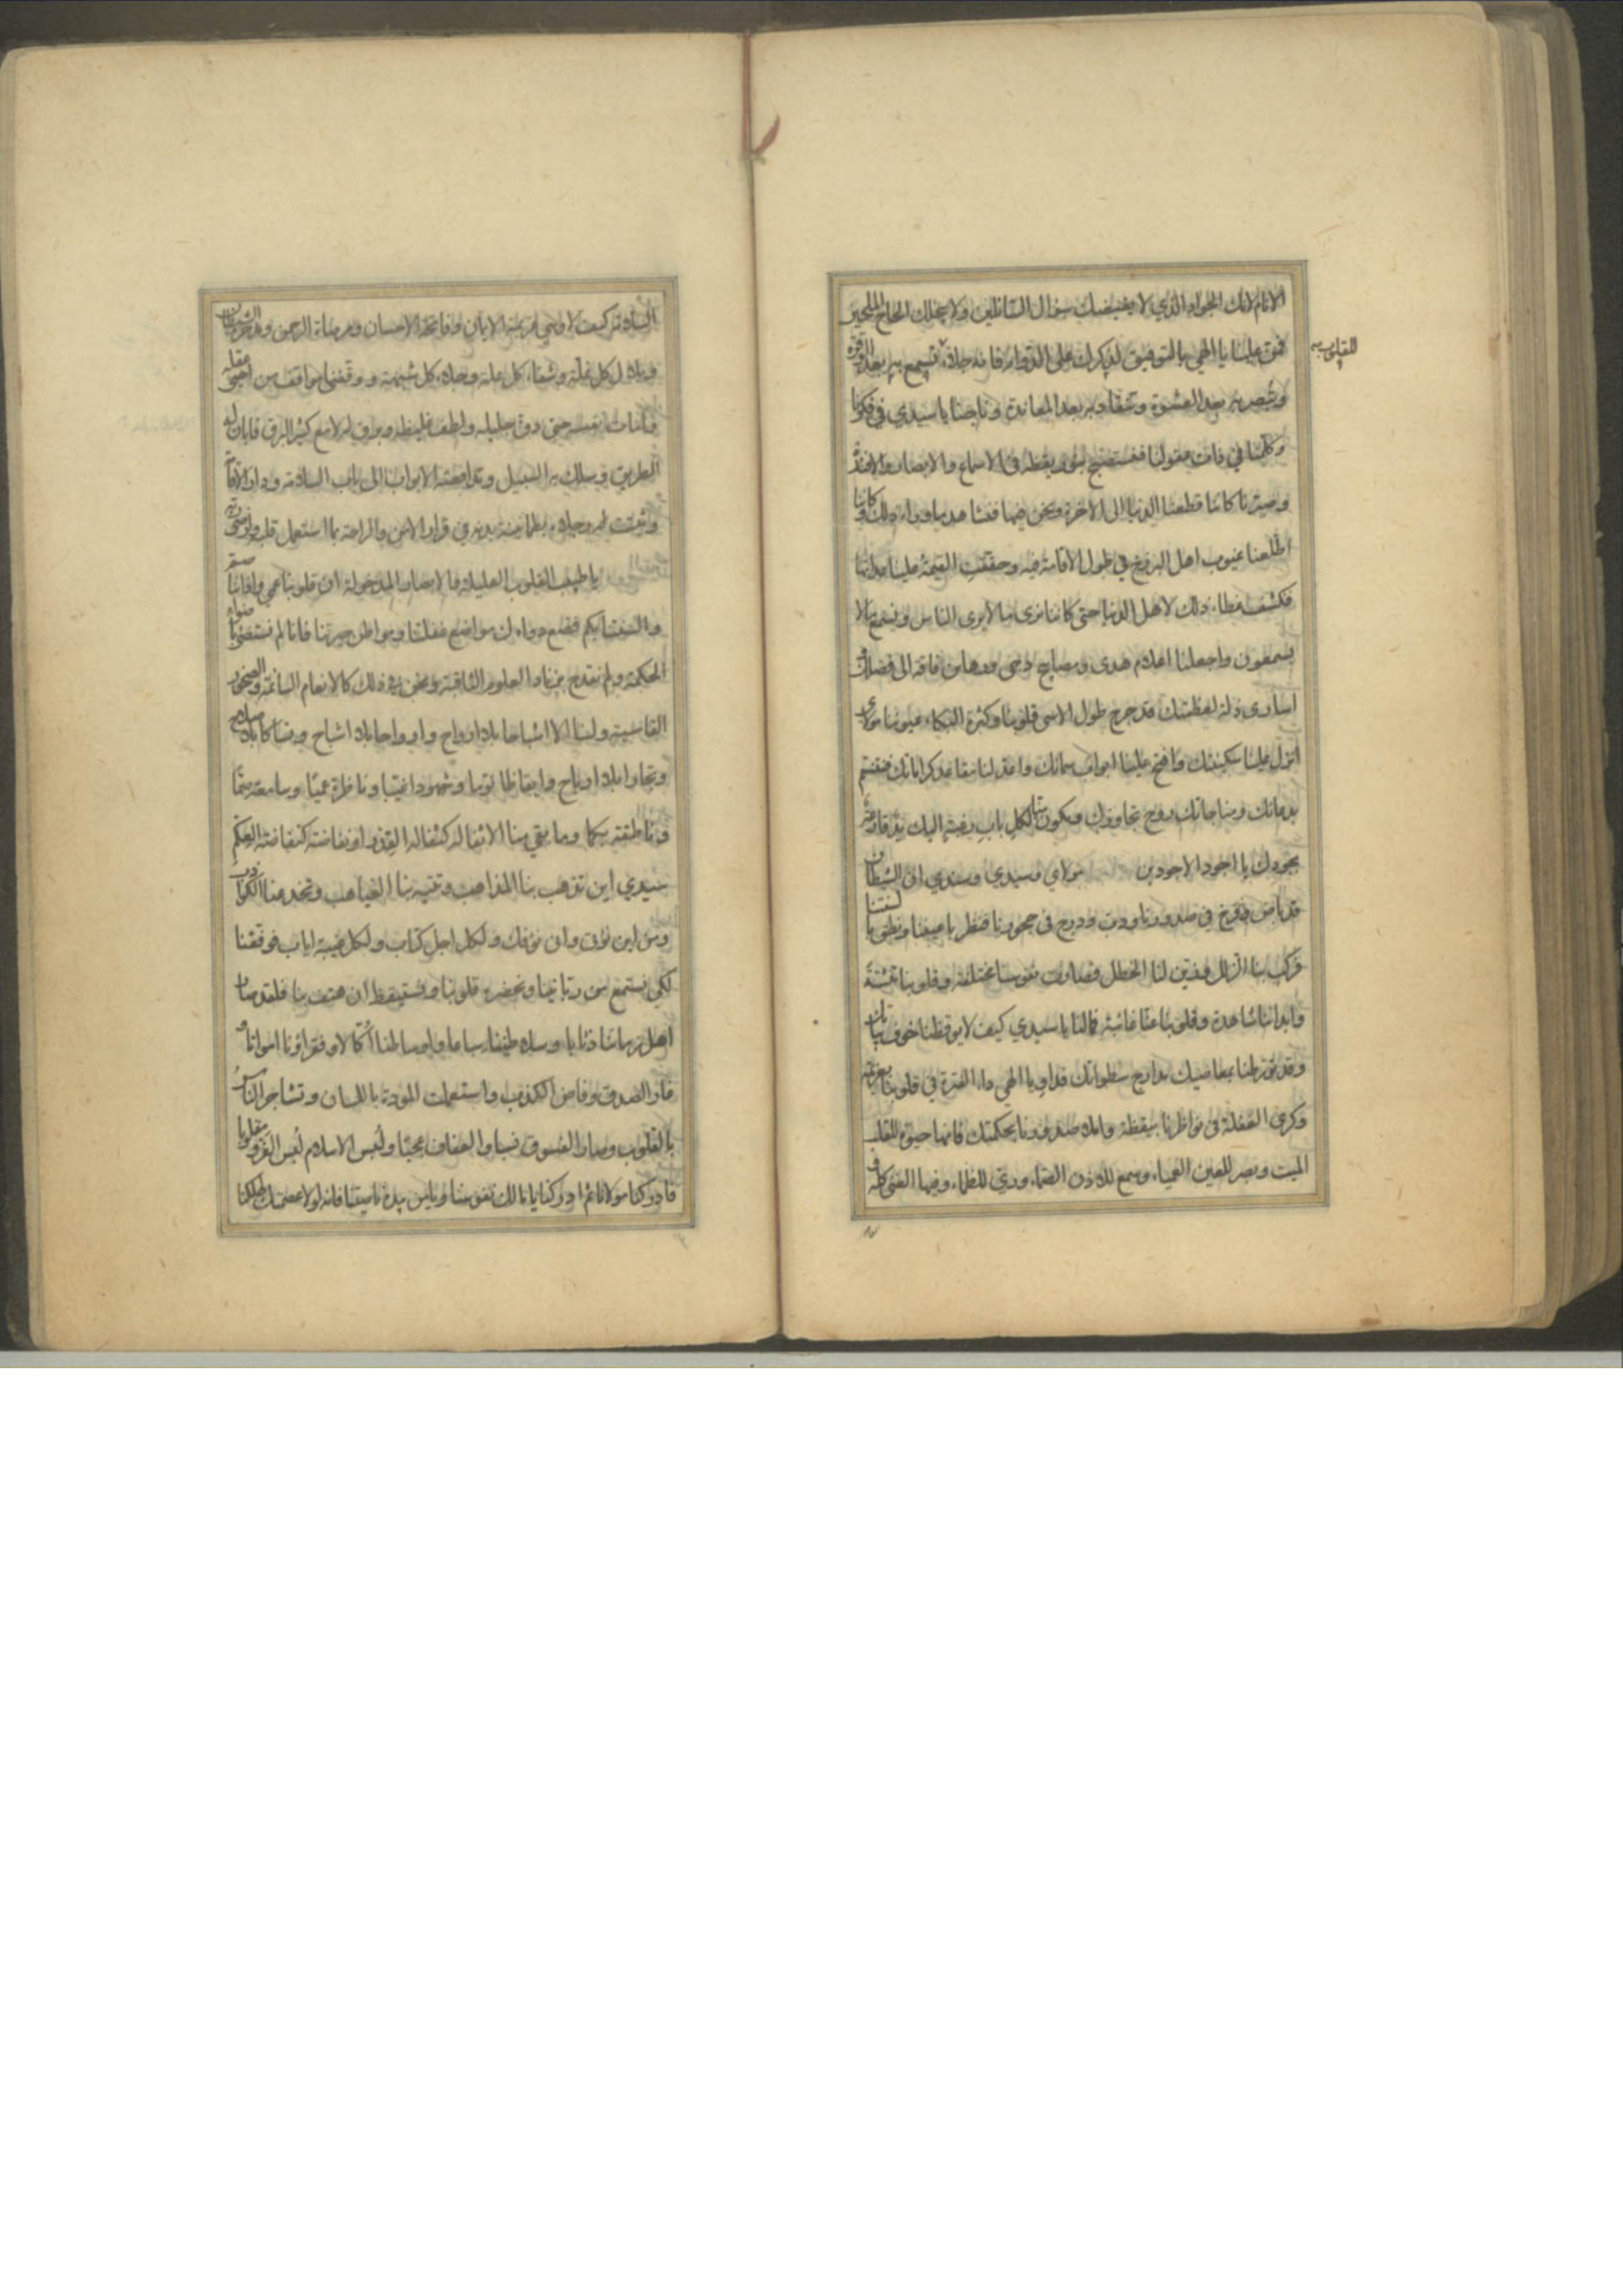 الانام لانك الجواد الذي لا يغيضك سؤال السائلين ولا يبخلك الحاح الملحين
للقلوب
فمن علينا يا الهي بالتوفيق لذكرك على الدوام فانه جلاء تسمع به بعد الوقرة
وتبصر به بعد العشوة وتنقاد به بعد المعاندة وناجنا يا سيدي في فكرنا
وكلمنا في ذات عقولنا فنستصبح بنور يقظة في الاسماع والابصار والافئدة
وصيرنا كاننا قطعنا الدنيا الى الاخرة ونحن فيها فشاهدنا وراء ذلك وكاننا
اطلعنا عيوب اهل البرزخ في طول الاقامة فيه وحققت القيمة علينا عداتها
فكشف غطاء ذلك لاهل الدنيا حتى كاننا نرى ما لا يرى الناس ونسمع ما لا
يسمعون واجعلنا اعلام هدى ومصابيح دجى ورهاين فاقه الى فضلك و
اسارى ذلة لعظمتك قد جرح طول الاسى قلوبنا وكثرة البكاء عيوننا مولاى
انزل علينا سكينتك وافتح علينا ابواب سمائك واعدد لنا مقاعد كراماتك فنغتنم
بدعائك ومناجاتك روح تجاوزك ويكون منا لكل باب رغبة اليك يد قارعة
بجودك يا اجود الاجودين مولاي وسيدي وسندي ان الشيطان
قد باض وفرخ في صدورنا ودب ودرج في حجورنا فنظر باعيننا ونطق بالسنتنا
فركب بنا الزلل وزين لنا الخطل فصارت نفوسنا مختلفة وقلوبنا مشتتة
وابداننا شاهدة وقلوبنا عنا غائبة فما لنا يا سيدي كيف لا يوقظنا خوف بيات
وقد تورطنا بمعاصيك مدارج سطواتك فداو يا الهي داء الفترة في قلوبنا بعزيمة
وكرى الغفلة في نواظرنا بيقظة واملاء صدورنا بحكمتك فانها حيوة للقلب
الميت وبصر للعين العمياء وسمع للاذن الصماء وري للظماء وفيها الغنى كله و
السلامة كيف لا وهي عزيمة الايمان وفاتحة الاحسان ومرضاة الرحمن ومدحرة الشيطان
وبلال كل غلة وشفاء كل علة وجلاء كل شبهة ووقفني مواقف من احيى عقله
وامات نفسه حتى دق جليله ولطف غليظه وبرق له لامع كثير البرق فابان له
الطريق وسلك به السبيل وتدافعته الابواب الى باب السلامة ودار الاقامة
وثبتت له رجلاه بطمانينة بدنه في قرار الامن والراحة بما استعمل قلبه وارضى ربه
يا طبيب القلوب العليلة والابصار المدخولة ان قلوبنا عمي واذاننا صم
والسنتنا بكم فضع دواءك مواضع غفلتنا ومواطن حيرتنا فانا لم نستضئ باضواء
الحكمة ولم نقدح بزناد العلوم الثاقبة ونحن في ذلك كالانعام السائمة والصخور
القاسية ولسنا الا اشباحا بلا ارواح وارواحا بلا اشباح ونساكا بلا صلاح
وتجارا بلا ارباح وايقاظا نوما وشهودا غيبا وناظرة عميا وسامعة صما
وناطقة بكما وما بقي منا الا ثفالة كثفالة القدر او نفاضة كنفاضة العكم
سيدي اين تذهب بنا المذاهب وتتيه بنا الغياهب وتخدعنا الكواذب
ومن اين نؤتى واني نؤفك ولكل اجل كتاب ولكل غيبة اياب فوفقنا
لكي نستمع من ربانينا ونحضره قلوبنا ونستيقظ ان هتف بنا فلقد صار
اهل زماننا ذئابا وسلاطيننا سباعا واوساطنا اكالا وفقراؤنا امواتا و
غار الصدق وفاض الكذب واستعملت المودة باللسان وتشاجر الناس
بالقلوب وصار الفسوق نسبا والعفاف عجبا ولبس الاسلام لبس الفرو مقلوبا
فادركنا مولانا ثم ادركنا يا مالك نفوسنا ويا من بيده ناصيتنا فانه لولا عصمتك لهلكنا